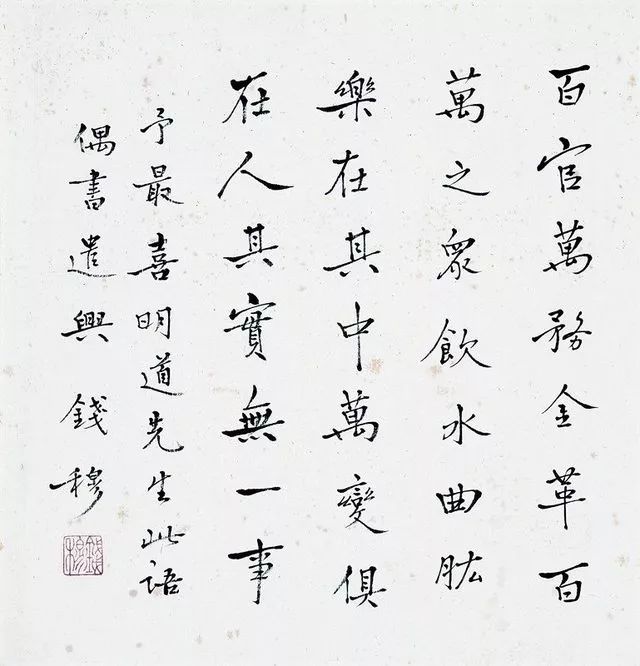 百官萬務金革百
萬之眾飲水曲肱
樂在其中萬變俱
在人其實無一事
予最喜明道先生此語
偶書遣興錢穆
錢穆